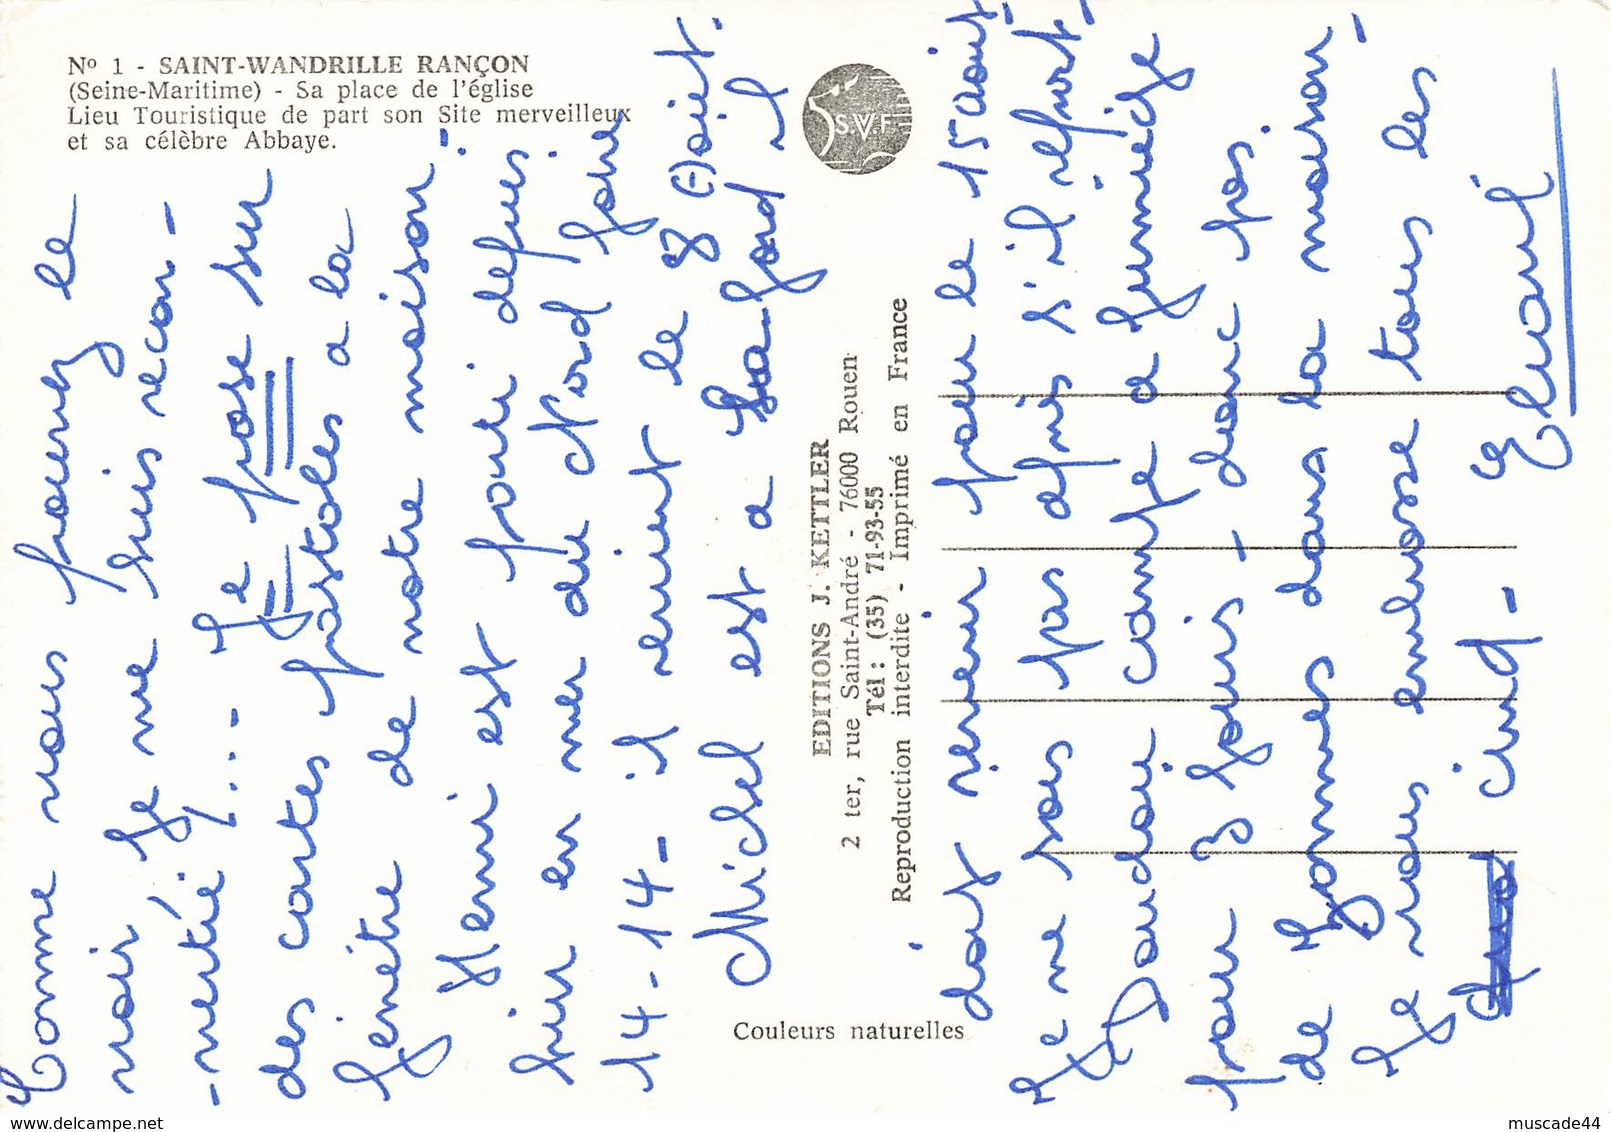 Nº 1 - SAINT-WANDRILLE RANÇON
(Seine-Maritime) - Sa place de l'église
Lieu Touristique de part son Site merveilleux
et sa célèbre Abbaye.
S.V.F.
EDITIONS J. KETTLER
2 ter, rue Saint-André - 76000 Rouen
Tél : (35) 71-93-55
Reproduction interdite - Imprimé en France
Couleurs naturelles
Comme vous pouvez le
voir, je me suis recon-
-vertie !... Je pose sur
des cartes postales a la
fenêtre de notre maison.
Henri est parti depuis
hier en mer du Nord faire
14-14-14 - il revient le 8 Août.
Michel est a il
doit revenir pour le 15 août.
Je ne sais pas après s'il repart.
J compte a Jumiége
pour 3 jours - donc pas
de dans la maison -
Je vous embrasse tous les
cinq -